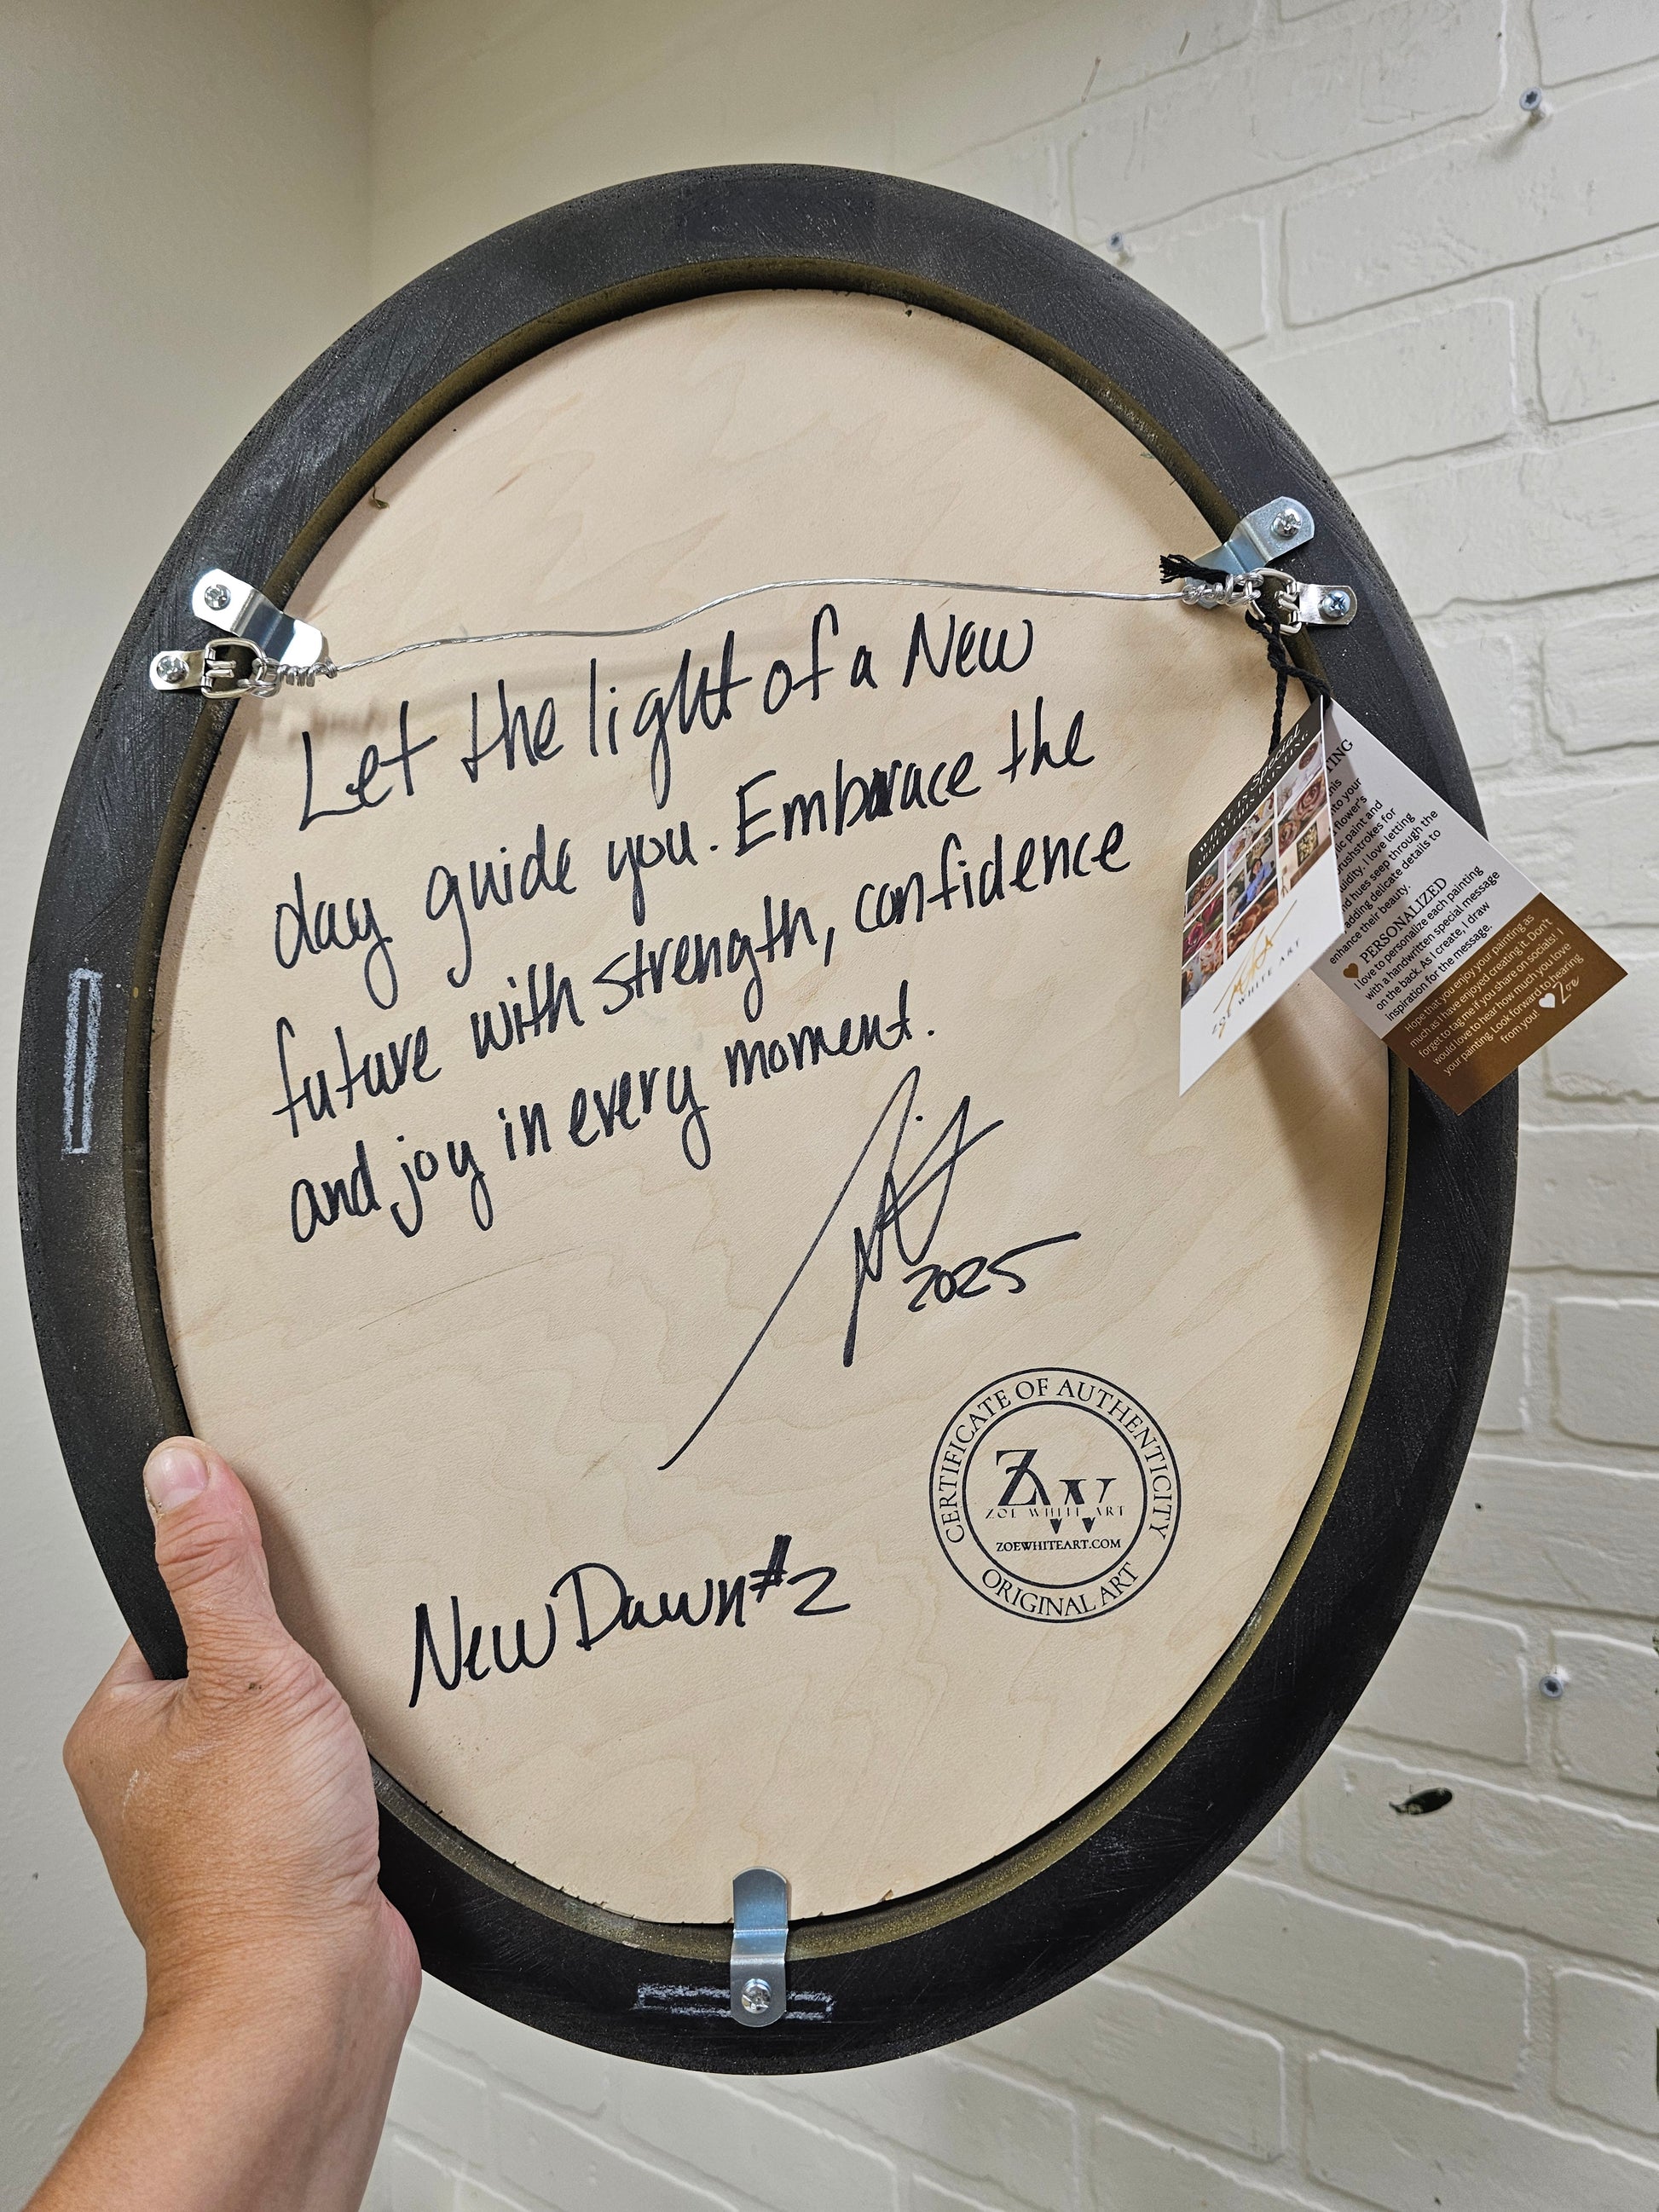 Let the light of a New
day guide you. Embrace the
future with strength, confidence
and joy in every moment.
2025
New Dawn #2
CERTIFICATE OF AUTHENTICITY
ZW
ZOE WHITE ART
ZOEWHITEART.COM
ORIGINAL ART
WHITE ART
enhance their beauty.
adding delicate details to
and hues seep through the
I love letting
brushstrokes for
paint and
flower's
into your
PERSONALIZED
I love to personalize each painting
with a handwritten special message
on the back. As I create, I draw
inspiration for the message.
Hope that you enjoy your painting as
much as I have enjoyed creating it. Don't
forget to tag me if you share on socials! I
would love to hear how much you love
your painting. Look forward to hearing
from you! Zoe